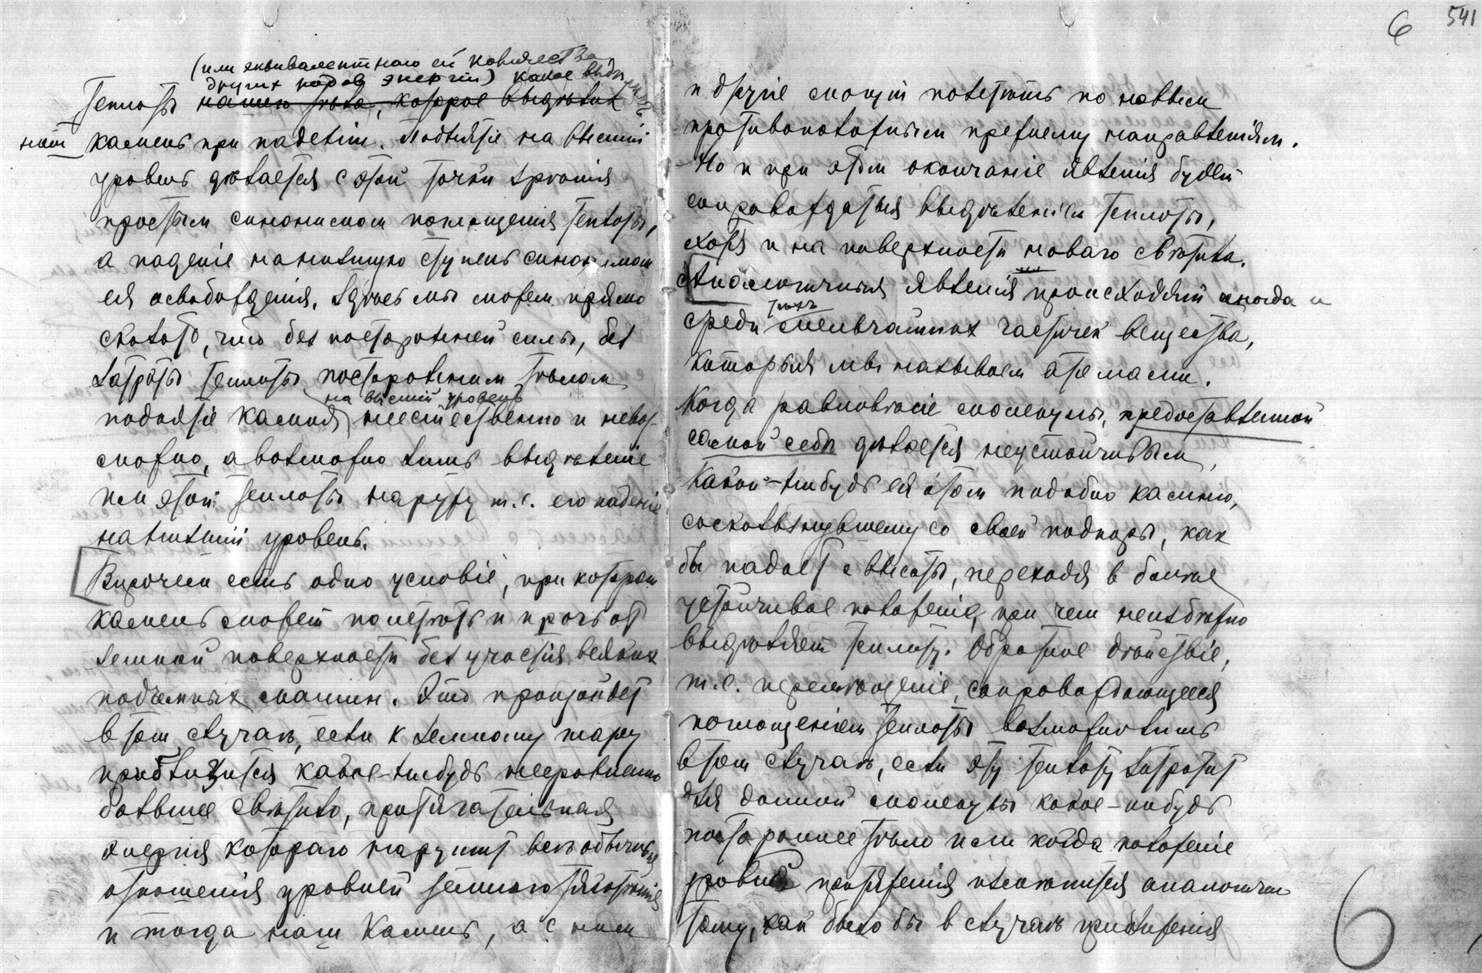 6 541
(или эквивалентного ей количества
других родов энергіи) какое выдѣлитъ
теплоты нашего тѣла, которое выдѣлилъ
нашъ камень при паденіи. Поднятіе на высшій
уровень дѣлается с этой точки зрѣнія
простымъ синонимомъ поглощенія теплоты,
а паденіе на низшую ступень синонимомъ
ея освобожденія. Здѣсь мы можемъ прямо
сказать, что безъ посторонней силы, безъ
затраты теплоты постороннимъ тѣломъ
на высшій уровень
поднятіе камня неестественно и невоз-
можно, а возможно лишь выдѣленіе
имъ этой теплоты наружу т.е. его паденіе
на низшій уровень.
Впрочемъ есть одно условіе, при которомъ
камень можетъ полетѣть и прочь отъ
земной поверхности безъ участія всякихъ
подъемныхъ машинъ. Это произойдетъ
в томъ случаѣ, если к земному шару
приблизится какое-нибудь несравненно
большее свѣтило, притягательная
энергія котораго нарушитъ всѣ обычныя
отношенія уровней земного тяготѣнія
и тогда нашъ камень, а с нимъ
и другіе могутъ полетѣть по новымъ
противоположнымъ прежнему направленіямъ.
Но и при этомъ окончаніе явленія будетъ
сопровождаться выдѣленіемъ теплоты,
хотя и на поверхности новаго свѣтила.
Аналогичныя явленія происходятъ иногда и
тѣхъ
среди мельчайшихъ частичекъ вещества,
которыя мы называемъ атомами.
Когда равновѣсіе молекулы, предоставленной
самой себѣ дѣлается неустойчивымъ,
какой-нибудь ея атомъ подобно камню,
соскользнувшему со своей подпоры, какъ
бы падаетъ с высоты, переходя в болѣе
устойчивое положеніе, при чемъ неизбѣжно
выдѣляетъ теплоту. Обратное дѣйствіе,
т.е. перемѣщеніе, сопровождающееся
поглощеніемъ теплоты возможно лишь
в томъ случаѣ, если эту теплоту затратитъ
для данной молекулы какое-нибудь
постороннее тѣло или когда положеніе
уровней притяженія измѣнится аналогично
тому, какъ было бы в случаѣ приближенія
6